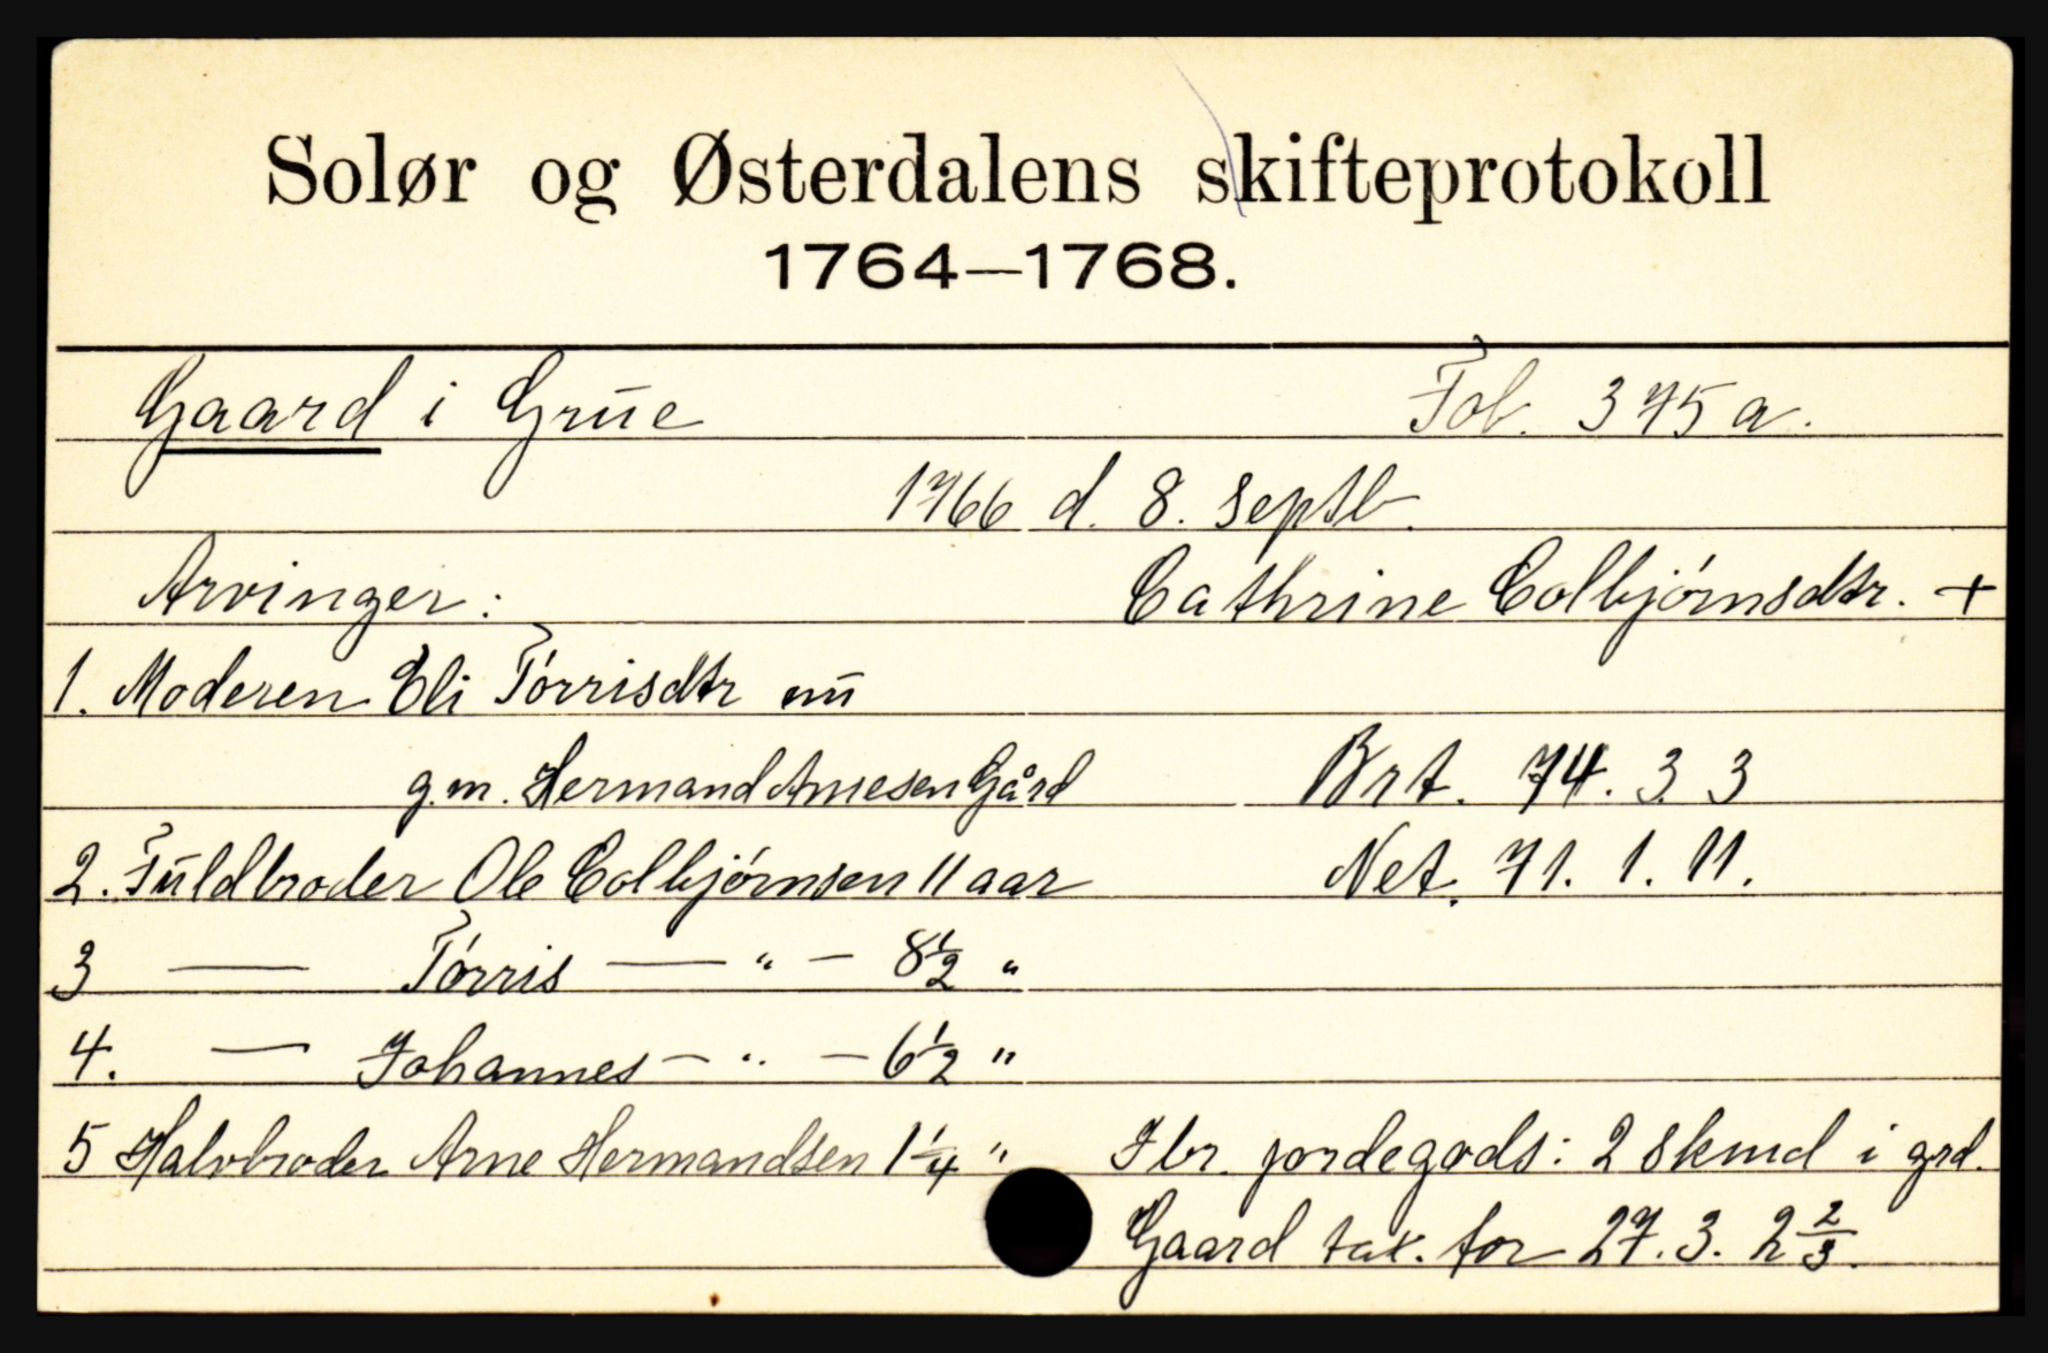 Solør og Østerdalens skifteprotokoll
1764—1768.
Gaard i Grūe Fol. 375 a.
1766 d. 8. septb.
Arvinger: Cathrine Colbjórnsdtr. +
1. Moderen Eli Tórrisdtr nū
g.m. Hermand Arnesen Gård Brt. 74. 3. 3
2. Fūldbroder Ole Colbjórnsen 11 aar Net. 71. 1. 11.
3 — Tórris — " — 8½ "
4. — Johannes — " — 6½ "
5 Halvbroder Arne Hermandsen 1¼ " Ibr. jordegods: 2 skmd i grd.
Gaard tax. for 27. 3. 2⅔.